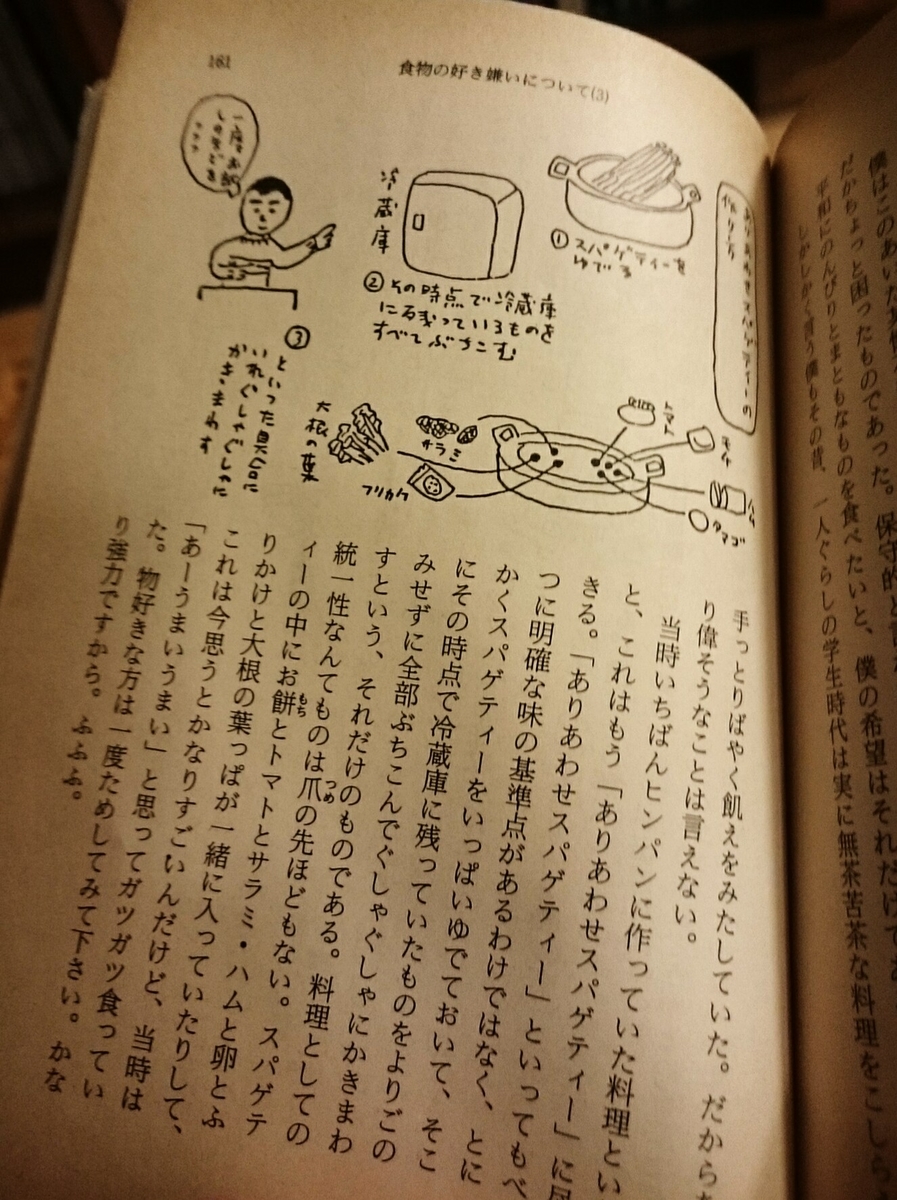 161
食物の好き嫌いについて(3)
ありあわせスパゲティーの
作り方
①スパゲティーを
ゆでる
冷蔵庫
②その時点で冷蔵庫
に残っているものを
すべてぶちこむ
一度お
トマト
モチ
ハム
タマゴ
サラミ
フリカケ
大根の葉
③
といった具合に
いれぐしゃぐしゃに
かきまわす
僕はこのあいだ
だからちょっと困ったものであった。保守的と言
平和にのんびりとまともなものを食べたいと、僕の希望はそれだけで
しかしかく言う僕もその昔、一人ぐらしの学生時代は実に無茶苦茶な料理をこしら
手っとりばやく飢えをみたしていた。だから
り偉そうなことは言えない。
当時いちばんヒンパンに作っていた料理とい
と、これはもう「ありあわせスパゲティー」に
きる。「ありあわせスパゲティー」といってもべ
つに明確な味の基準点があるわけではなく、とに
かくスパゲティーをいっぱいゆでておいて、そこ
にその時点で冷蔵庫に残っていたものをよりごの
みせずに全部ぶちこんでぐしゃぐしゃにかきまわ
すという、それだけのものである。料理としての
統一性なんてものは爪の先ほどもない。スパゲテ
ィーの中にお餅とトマトとサラミ・ハムと卵とふ
りかけと大根の葉っぱが一緒に入っていたりして、
これは今思うとかなりすごいんだけど、当時は
「あーうまいうまい」と思ってガツガツ食ってい
た。物好きな方は一度ためしてみて下さい。かな
り強力ですから。ふふふ。